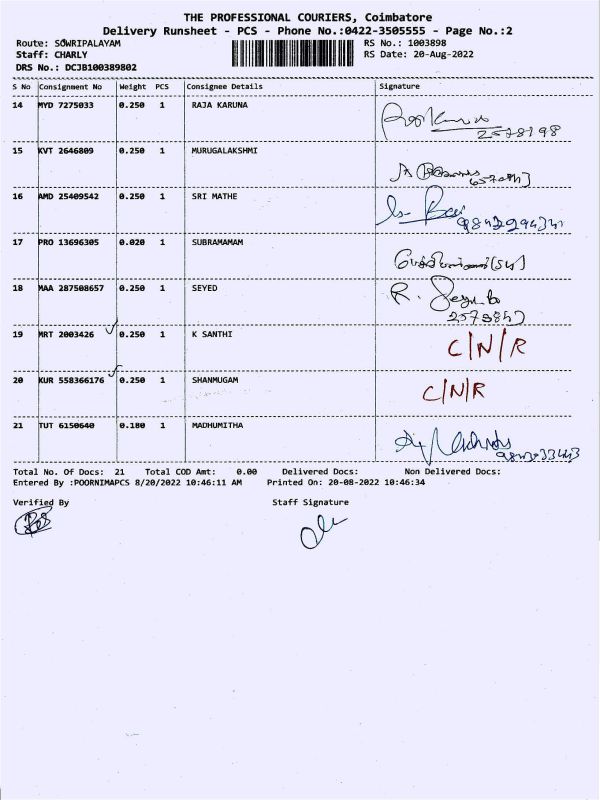 THE PROFESSIONAL COURIERS, Coimbatore
Delivery Runsheet - PCS - Phone No.:0422-3505555 - Page No.:2
Route: SOWRIPALAYAM RS No.: 1003898
Staff: CHARLY RS Date: 20-Aug-2022
DRS No.: DCJB100389802
S No Consignment No Weight PCS Consignee Details Signature
14 MYD 7275033 0.250 1 RAJA KARUNA
2578198
15 KVT 2646809 0.250 1 MURUGALAKSHMI
16 AMD 25409542 0.250 1 SRI MATHE
17 PRO 13696305 0.020 1 SUBRAMAMAM
18 MAA 287508657 0.250 1 SEYED R.
19 MRT 2003426 0.250 1 K SANTHI C/N/R
20 KUR 558366176 0.250 1 SHANMUGAM C/N/R
21 TUT 6150640 0.180 1 MADHUMITHA
Total No. Of Docs: 21 Total COD Amt: 0.00 Delivered Docs: Non Delivered Docs:
Entered By :POORNIMAPCS 8/20/2022 10:46:11 AM Printed On: 20-08-2022 10:46:34
Verified By Staff Signature